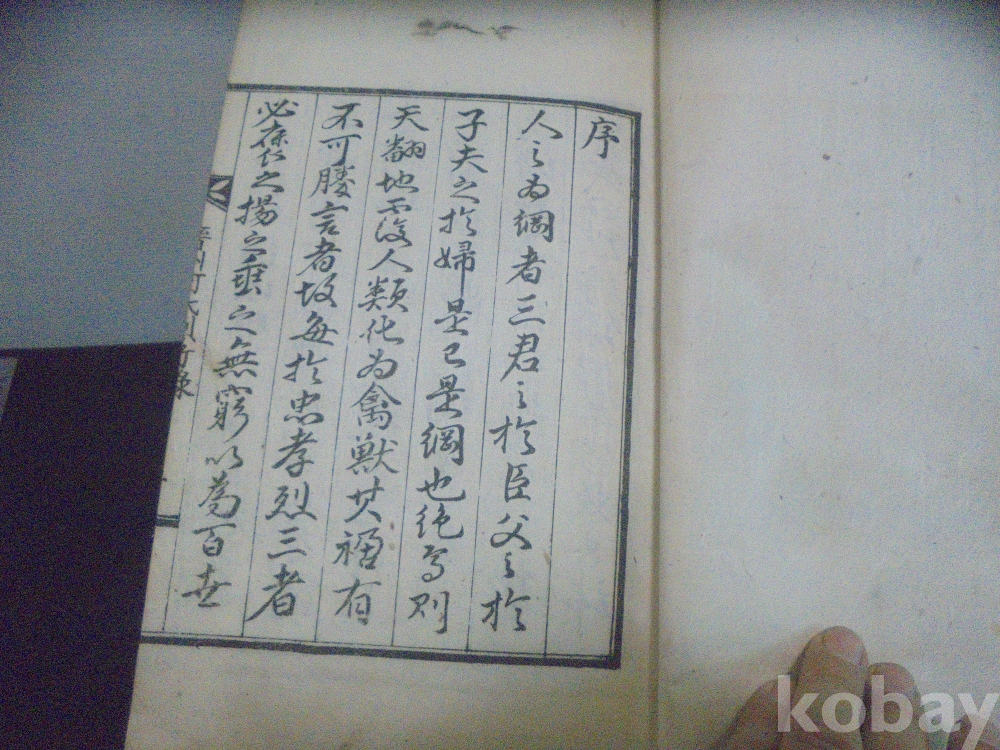 序
人之為綱者三君之於臣父之於
子夫之於婦是已是綱也絶焉則
天翻地覆人類化為禽獣其禍有
不可勝言者故每於忠孝烈三者
必表之揚之垂之無窮以為百世
kobay